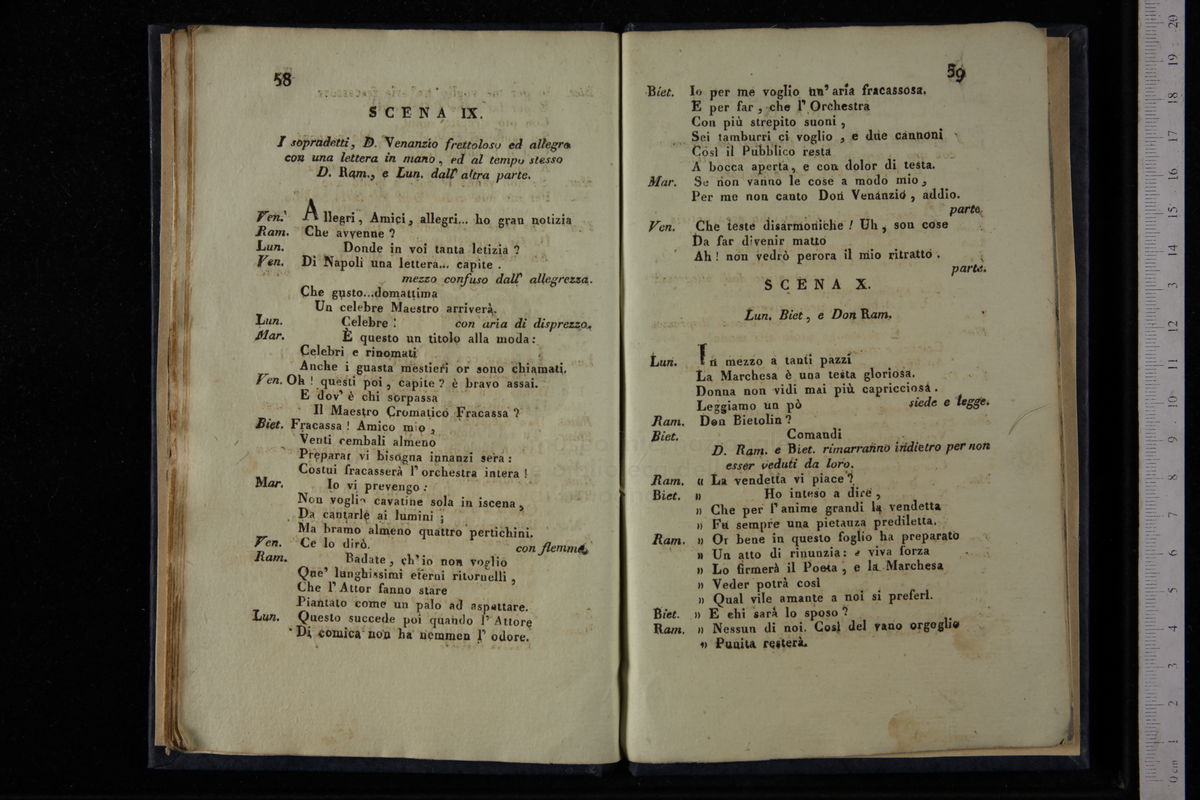 58
SCENA IX.
I sopradetti, D. Venanzio frettoloso ed allegro
con una lettera in mano, ed al tempo stesso
D. Ram., e Lun. dall' altra parte.
Ven. Allegri, Amici, allegri... ho gran notizia
Ram. Che avvenne?
Lun. Donde in voi tanta letizia?
Ven. Di Napoli una lettera... capite.
mezzo confuso dall' allegrezza.
Che gusto...domattina
Un celebre Maestro arriverà.
Lun. Celebre! con aria di disprezzo.
Mar. È questo un titolo alla moda:
Celebri e rinomati
Anche i guasta mestieri or sono chiamati.
Ven. Oh! questi poi, capite? è bravo assai.
E dov' è chi sorpassa
Il Maestro Cromatico Fracassa?
Biet. Fracassa! Amico mio,
Venti cembali almeno
Preparar vi bisogna innanzi sera:
Costui fracasserà l' orchestra intera!
Mar. Io vi prevengo:
Non voglio cavatine sola in iscena,
Da cantarle ai lumini;
Ma bramo almeno quattro pertichini.
Ven. Ce lo dirò. con flemma.
Ram. Badate, ch' io non voglio
Que' lunghissimi eterni ritornelli,
Che l' Attor fanno stare
Piantato come un palo ad aspettare.
Lun. Questo succede poi quando l' Attore
Di comica non ha nemmen l' odore.
59
Biet. Io per me voglio un' aria fracassosa.
E per far, che l' Orchestra
Con più strepito suoni,
Sei tamburri ci voglio, e due cannoni
Così il Pubblico resta
A bocca aperta, e con dolor di testa.
Mar. Se non vanno le cose a modo mio,
Per me non canto Don Venanzio, addio.
parte.
Ven. Che teste disarmoniche! Uh, son cose
Da far divenir matto
Ah! non vedrò perora il mio ritratto.
parte.
SCENA X.
Lun. Biet, e Don Ram.
Lun. In mezzo a tanti pazzi
La Marchesa è una testa gloriosa.
Donna non vidi mai più capricciosa.
Leggiamo un pò siede e legge.
Ram. Don Bietolin?
Biet. Comandi
D. Ram. e Biet. rimarranno indietro per non
esser veduti da loro.
Ram. « La vendetta vi piace?
Biet. » Ho inteso a dire,
» Che per l' anime grandi la vendetta
» Fu sempre una pietanza prediletta.
Ram. » Or bene in questo foglio ha preparato
» Un atto di rinunzia: a viva forza
» Lo firmerà il Poeta, e la Marchesa
» Veder potrà così
» Qual vile amante a noi si preferì.
Biet. » E chi sarà lo sposo?
Ram. » Nessun di noi. Così del vano orgoglio
» Punita resterà.